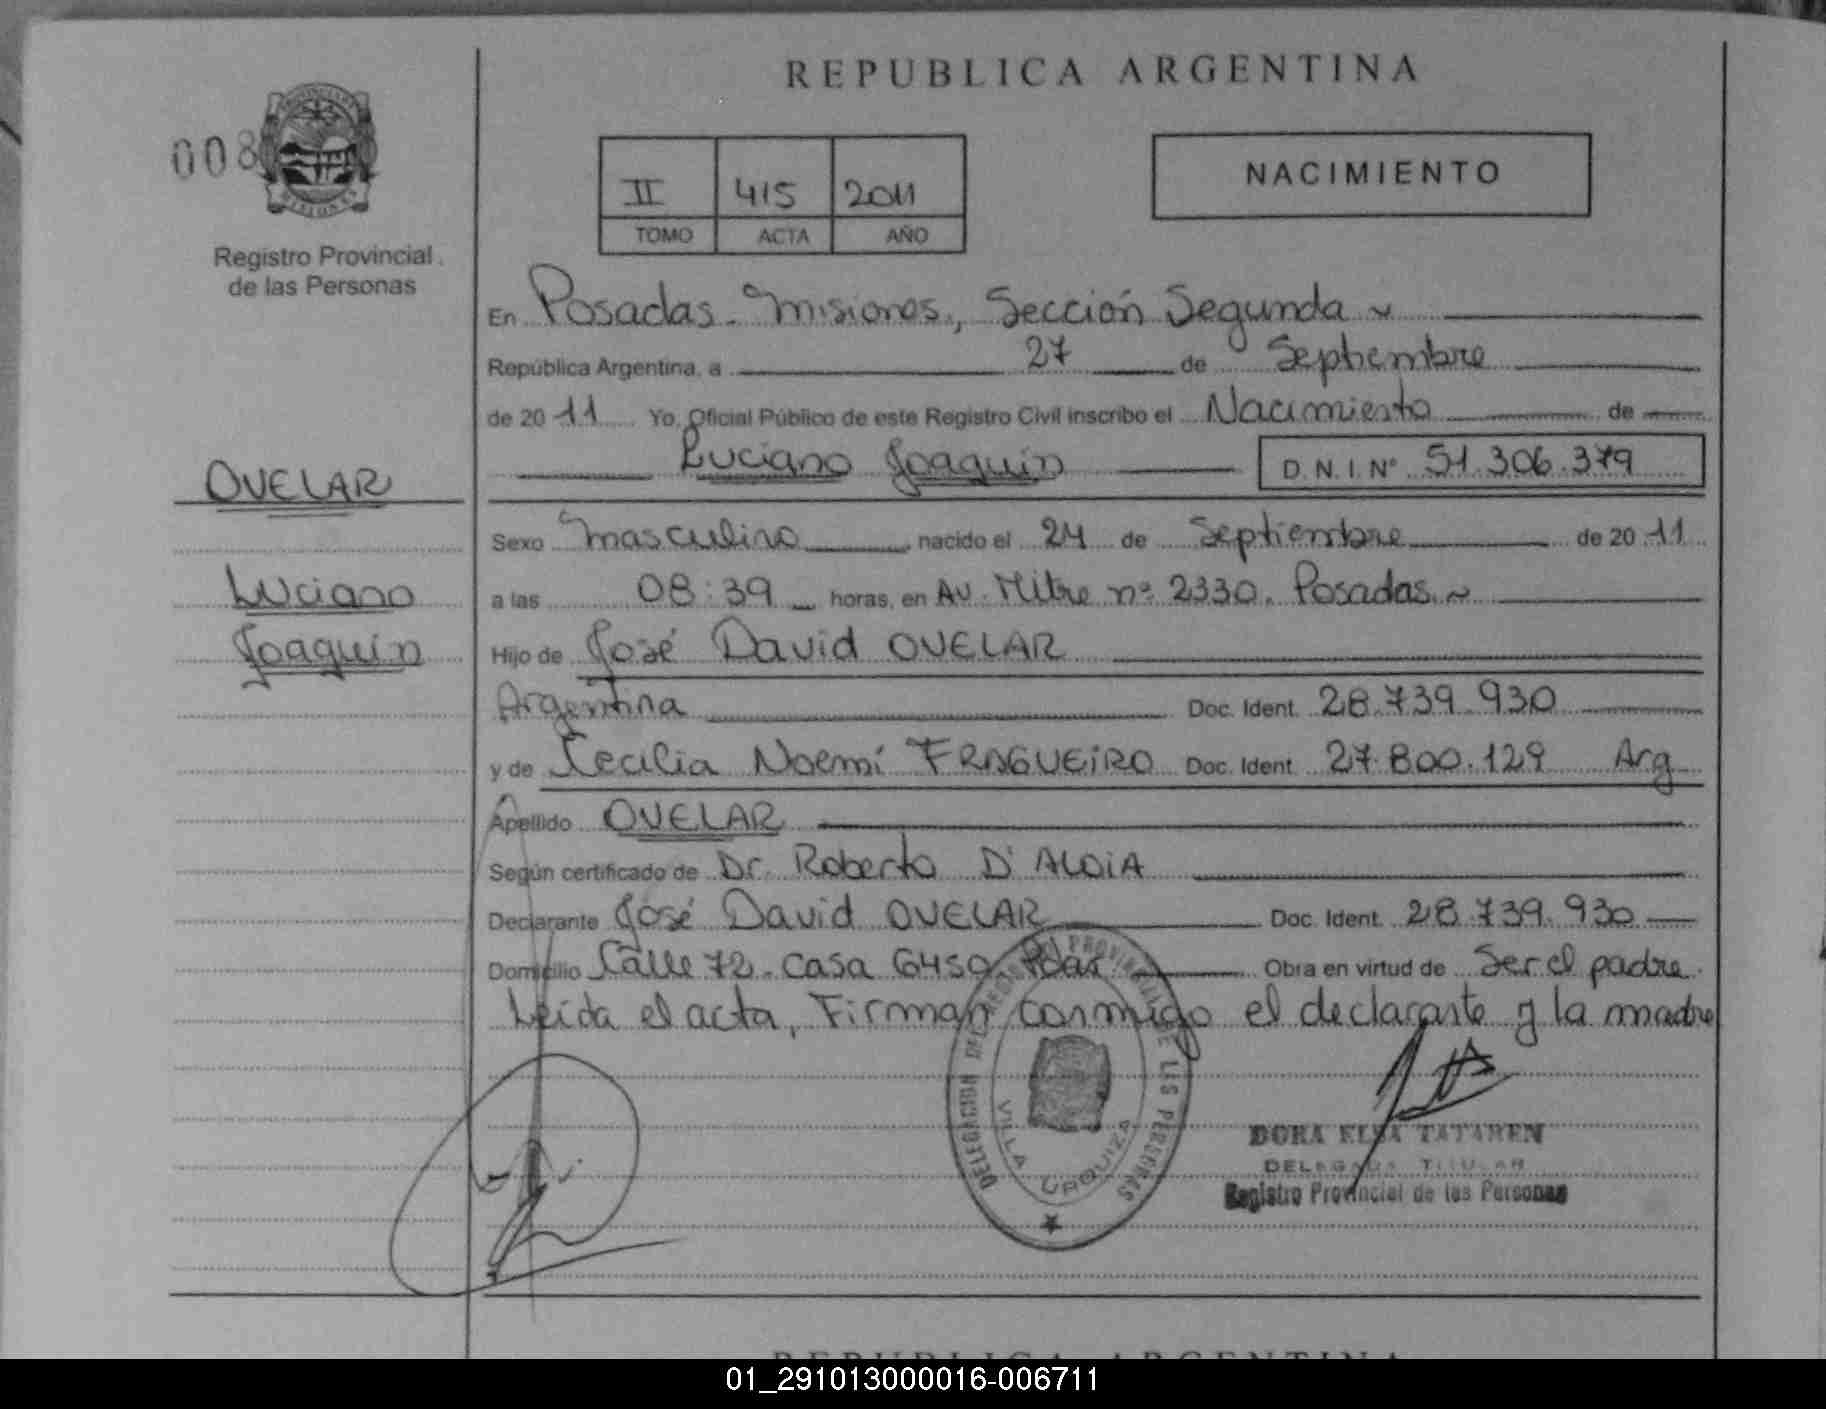 REPUBLICA ARGENTINA
008
II 415 2011
TOMO ACTA AÑO
NACIMIENTO
Registro Provincial
de las Personas
En Posadas. Misiones, Sección Segunda
República Argentina, a 27 de Septiembre
de 2011 Yo, Oficial Público de este Registro Civil inscribo el Nacimiento de
Luciano Joaquín D.N.I. Nº 51.306.379
OVELAR
Luciano
Joaquín
Sexo Masculino nacido el 24 de Septiembre de 2011
a las 08:39 horas, en Av. Mitre nº 2330. Posadas.
Hijo de José David OVELAR
Argentina Doc. Ident. 28.739.930
y de Cecilia Noemí FRAGUEIRO Doc. Ident. 27.800.129 Arg
Apellido OVELAR
Según certificado de Dr. Roberto D'ALOIA
Declarante José David OVELAR Doc. Ident. 28.739.930
Domicilio Calle 72. Casa 6459 Pdas. Obra en virtud de Ser el padre.
Leída el acta, Firman conmigo el declarante y la madre
DELEGACION DEL REGISTRO PROVINCIAL DE LAS PERSONAS
VILLA URQUIZA
DORA ELSA TATAREN
DELEGADA TITULAR
Registro Provincial de las Personas
REPUBLICA ARGENTINA
01_291013000016-006711